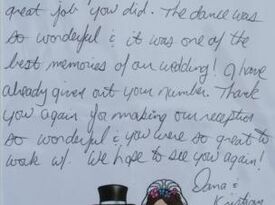 great job you did. The dance was
so wonderful & it was one of the
best memories of our wedding! I have
already given out your number. Thank
you again for making our reception
so wonderful & you were so great to
work w/. We hope to see you again!
Dana &
Kristian